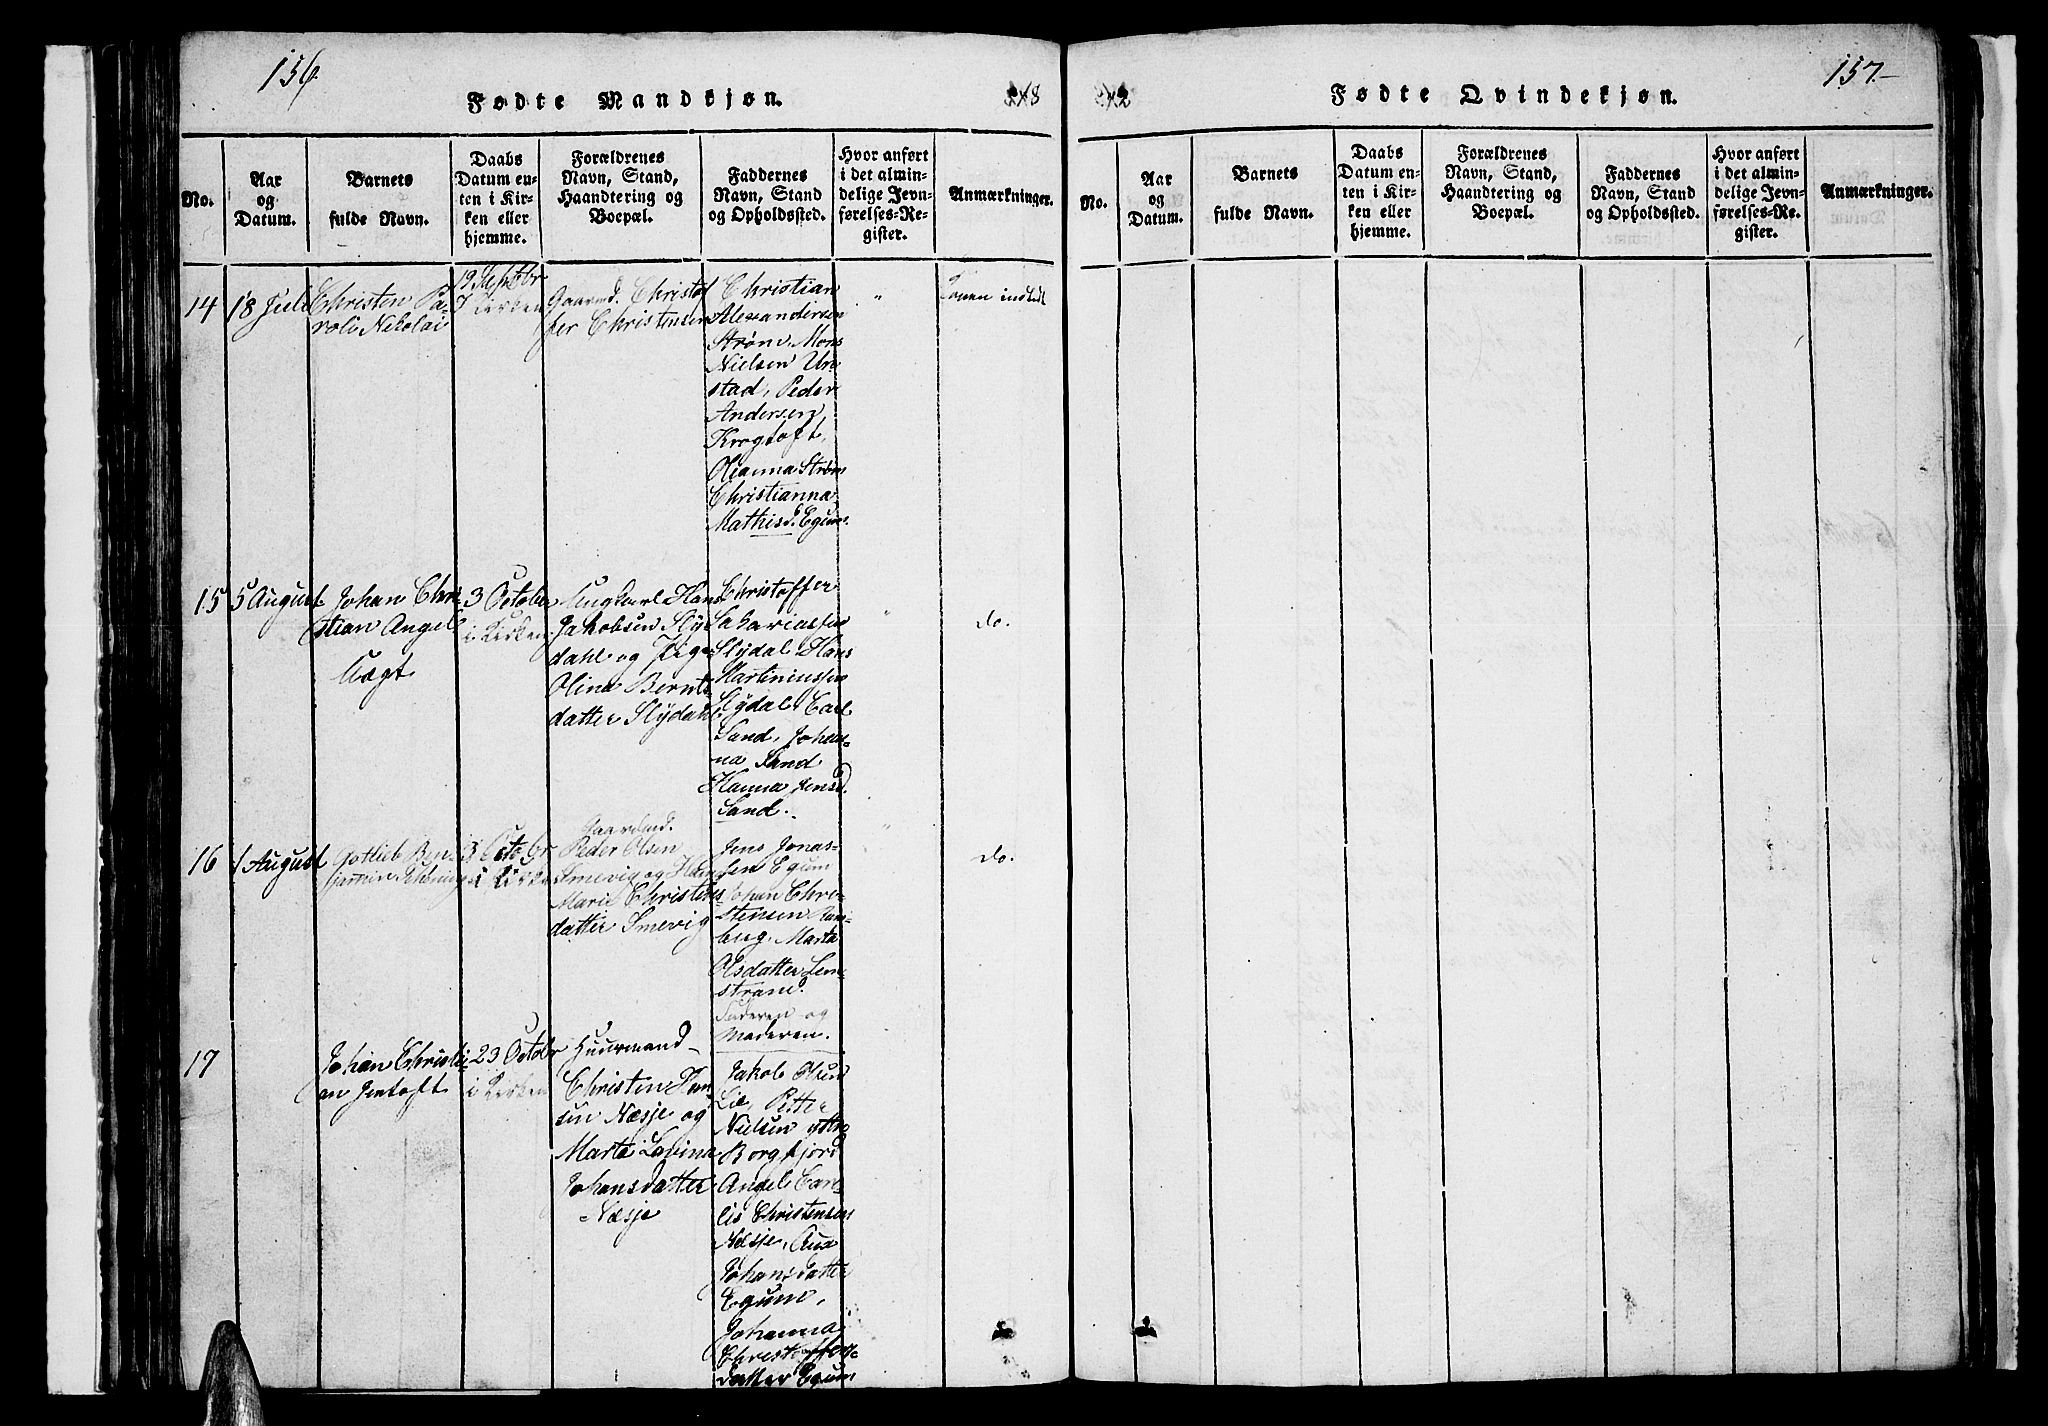 156
Fødte Mandkjøn.
No.
Aar
og
Datum.
Barnets
fulde Navn.
Daabs
Datum en-
ten i Kir-
ken eller
hjemme.
Forældrenes
Navn, Stand,
Haandtering og
Boepæl.
Faddernes
Navn, Stand
og Opholdssted.
Hvor anført
i det almin-
delige Jevn-
førelses-Re-
gister.
Anmærkninger.
14
18 Juli
Christen Pa-
roliv Nikolai
19 Septbr
i Kirken
Gaarmd. Christof
fer Christensen
Christian
Alexandersen
Strøm, Mons
Nielsen Un-
stad, Peder
Andersen,
Krogtoft,
Olianna Strøm
Christianna
Mathisd. Egum.
"
15
5 August
Johan Chri-
stian Angel
Vogt
3 October
i Kirken
Ungkarl Hans
Jakobsen Sly-
dahl og Pige
Olina Bernts
datter Slydahl
Christoffer
Sakariassen
Slydal, Hans
Martiniussen
Slydal, Carl
Sand, Johan-
na Sand
Hanna Jensd.
Sand.
"
do.
16
1 August
Gotlieb Ben-
jamin
3 Octobr
i Kirken
Gaardmd.
Peder Olsen
Smevig og
Marie Christens-
datter Smevig
Jens Jonas-
sen Egum
Johan Chri-
stensen Ram-
berg, Marta
Olsdatter Lim-
strand.
Faderen og
Moderen.
"
do.
17
Johan Christi-
an Jentoft
23 Octobr
i Kirken
Huusmand
Christen Han-
sen Næsje og
Marta Lavina
Johansdatter
Næsje
Jakob Olsen
Lie, Petter
Nielsen ytter
Borgfjord
Angel Car-
lis Christensen
Næsje,
Johansdatter
Egum,
Johanna
Christoffers-
datter Egum
157
Fødte Qvindekjøn.
No.
Aar
og
Datum.
Barnets
fulde Navn.
Daabs
Datum en-
ten i Kir-
ken eller
hjemme.
Forældrenes
Navn, Stand,
Haandtering og
Boepæl.
Faddernes
Navn, Stand
og Opholdssted.
Hvor anført
i det almin-
delige Jevn-
førelses-Re-
gister.
Anmærkninger.